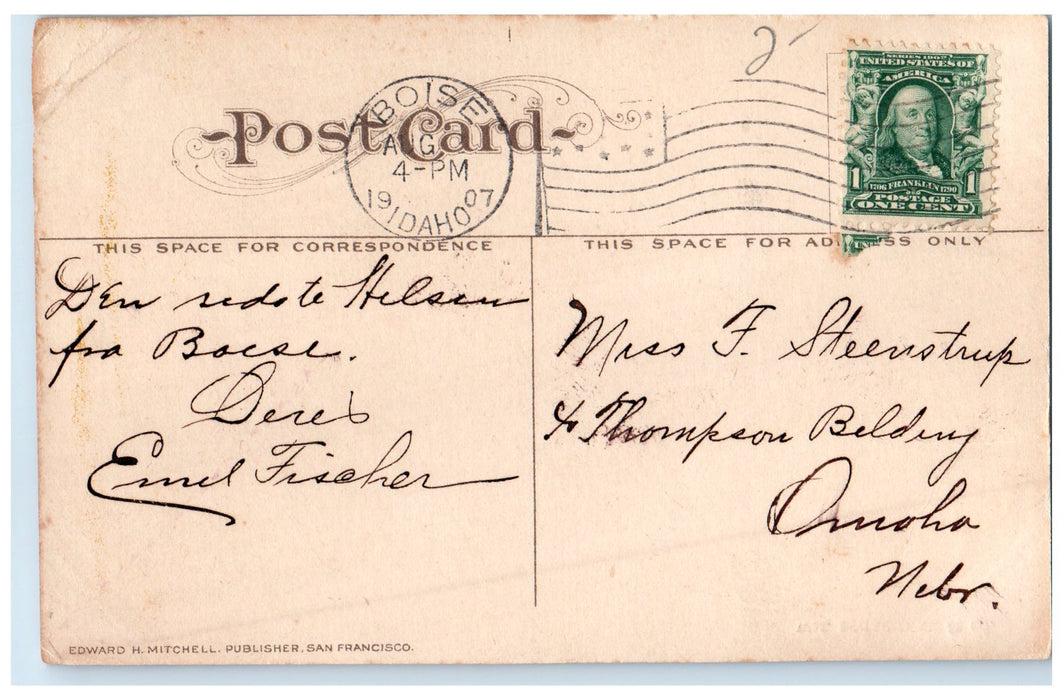 2-
Post Card
BOISE
AUG
4-PM
1907
IDAHO
SERIES 1902
UNITED STATES OF
AMERICA
1 1706 FRANKLIN 1790 1
POSTAGE
ONE CENT
THIS SPACE FOR CORRESPONDENCE
THIS SPACE FOR AD SS ONLY
Den sidste Hilsen
fra Boese.
Deres
Emil Fischer
Miss F. Steenstrup
℅ Thompson Belding
Omaha
Nebr.
EDWARD H. MITCHELL. PUBLISHER, SAN FRANCISCO.